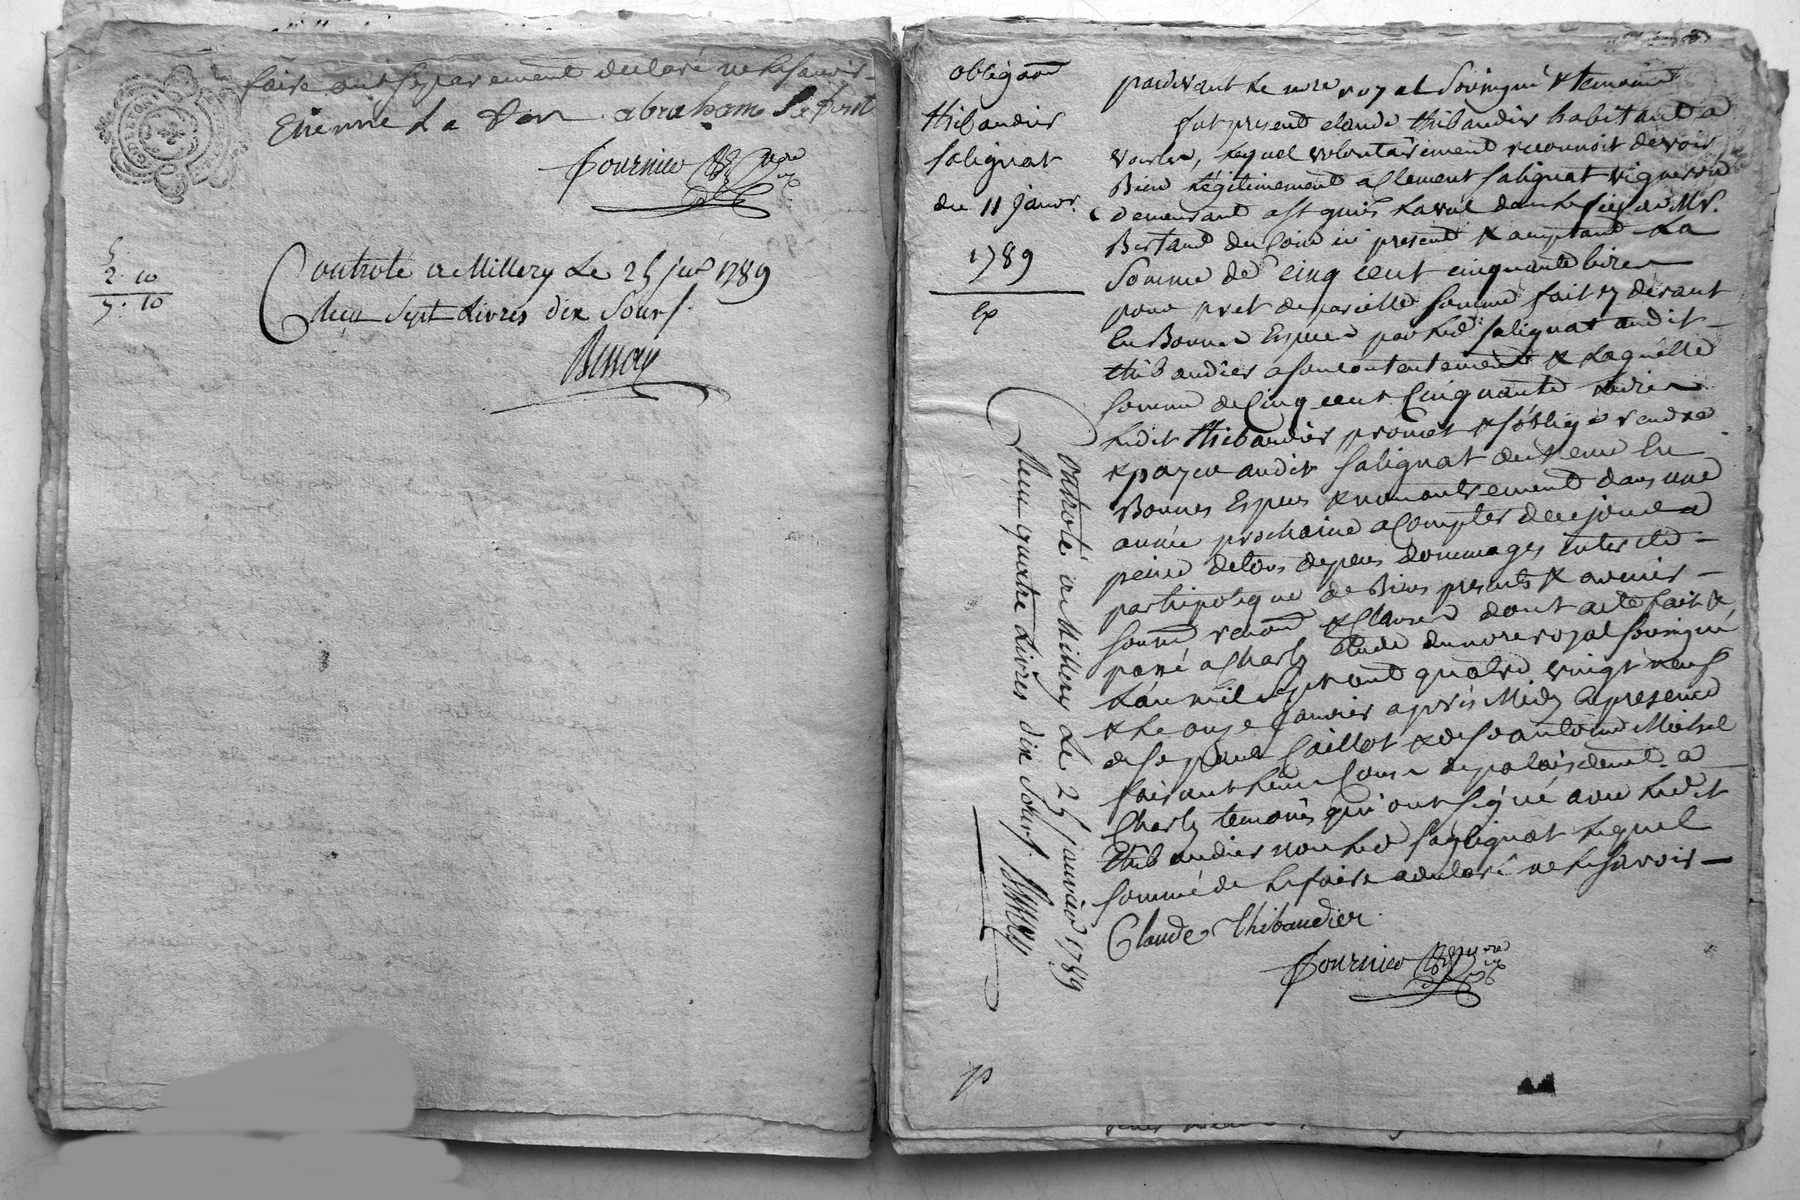 faire ont separement declaré ne le savoir
Etienne La
abraham
Fournier nre
5
2. 10
7. 10
Controlé a Millery Le 25 janr 1789
Reçu sept Livres dix sous
Benoit
obligaon
thibaudier
salignat
du 11 janvr.
1789
pardevant le nore royal soussigné & temoins
fut present claude thibaudier habitant a
lequel volontairement reconnoit devoir
Bien legitimement a Clement salignat vigneron
demeurant a st genis Laval dans le de Mr.
Bertaud du Coin ici present & acceptant La
somme de cinq cent cinquante livres
pour pret de pareille somme fait cy devant
en Bonnes Especes par led. salignat audit
thibaudier a son contentement & Laquelle
somme de Cinq cent Cinquante livres
Ledit thibaudier promet & s'oblige rendre
& payer audit salignat acceptant en
Bonnes Especes & numerairement dans une
année prochaine a Compter de ce jour a
peine de tous depens Dommages interets
par hipoteque de Biens presents & avenir
soum renon & Clauses dont acte fait &
passé a Charly etude du nore royal soussigné
L'an mil sept cent quatre vingt neuf
& le onze janvier après Midy en presence
de sr pierre Caillot & de sr antoine Michel
faisant leur Cours de palais dem.t a
Charly temoins qui ont signé avec Ledit
thibaudier non led salignat Lequel
sommé de le faire a declaré ne le savoir
Claude Thibaudier
Fournier nore
Controlé a Millery Le 25 janvier 1789
Reçu quatre Livres dix sous. Benoit